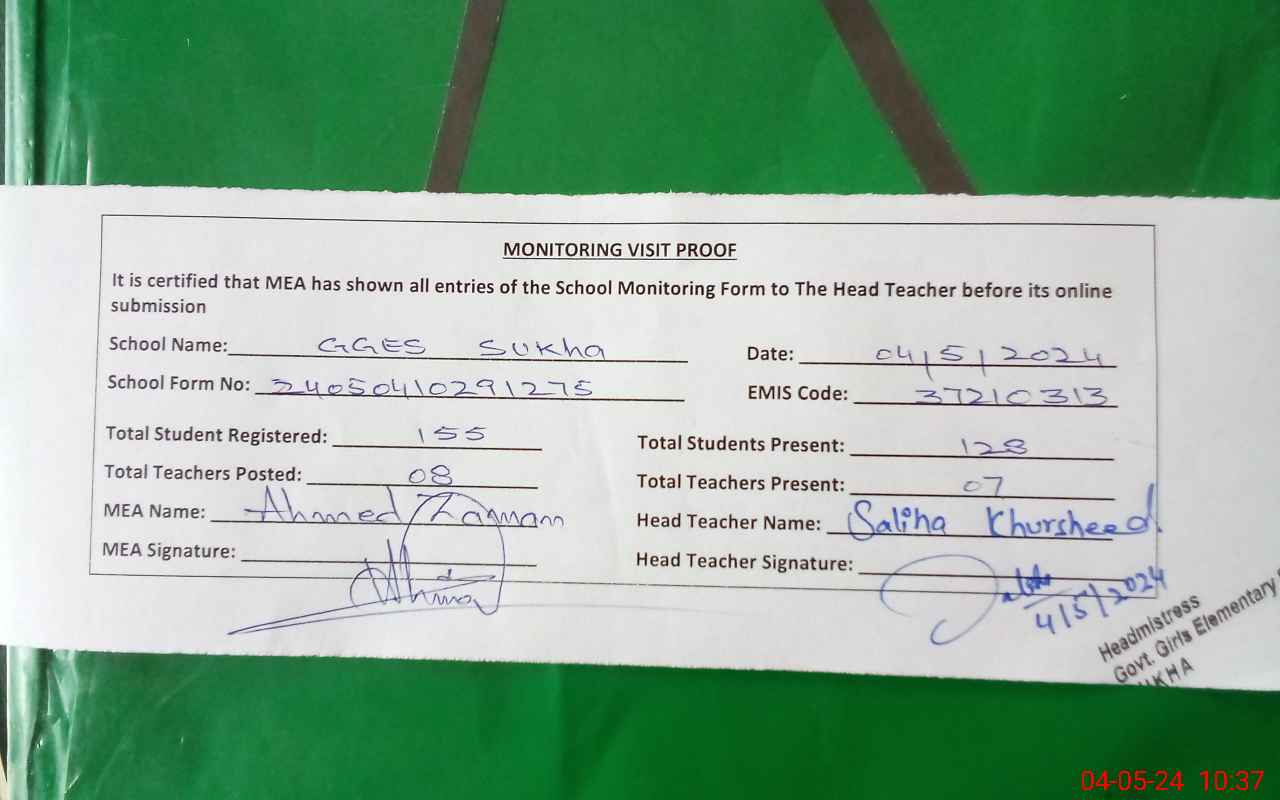 MONITORING VISIT PROOF
It is certified that MEA has shown all entries of the School Monitoring Form to The Head Teacher before its online
submission
School Name: GGES Sukha Date: 04/5/2024
School Form No: 24050410291275 EMIS Code: 37210313
Total Student Registered: 155 Total Students Present: 128
Total Teachers Posted: 08 Total Teachers Present: 07
MEA Name: Ahmed Zaman Head Teacher Name: Saliha Khursheed
MEA Signature: Head Teacher Signature:
4/5/2024
Headmistress
Govt. Girls Elementary
UKHA
04-05-24 10:37